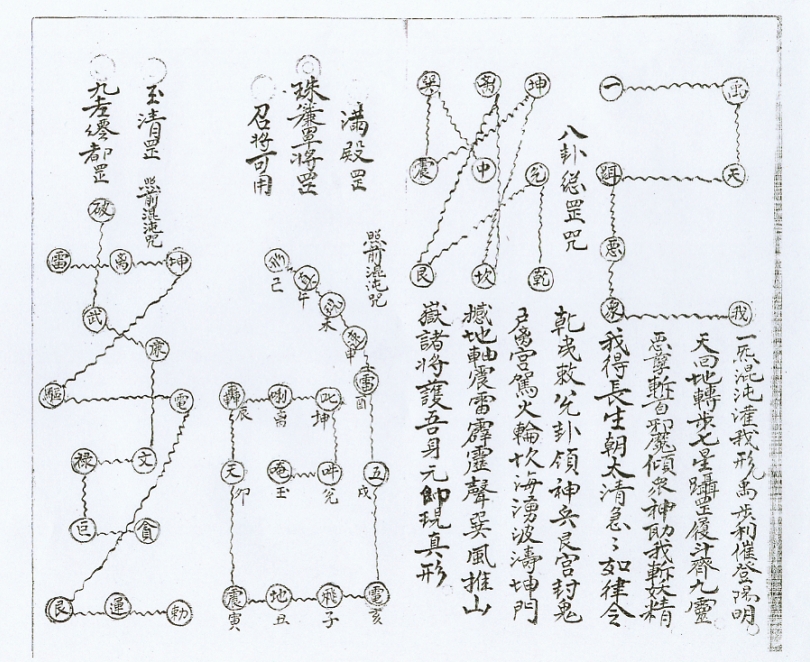 一 禹
天
惡
衆 我
一炁混沌灌我形禹步利催登陽明
天回地轉步七星躡罡履斗齊九靈
惡孽斬首邪魔傾衆神助我斬妖精
我得長生朝太清急〻如律令
八卦總罡咒
坤 离 巽
兌 中 震
乾 坎 艮
乾曳救兌卦領神兵艮宮封鬼
戶离宮駕火輪坎海湧波濤坤門
撼地軸震雷霹靂聲巽風推山
嶽諸將護吾身元帥現真形
滿殿罡
照前混沌咒
珠簾罩將罡
召將可用
己
午
未
申
雷 酉
五 戌
雷 亥
飛 子
地 丑
震 寅
天 卯
轟 辰
唎 离
吽 兌
唵 玉
玉清罡
照前混沌咒
坤 离 雷
驅 電
艮 運 勅
九老僊都罡
破
武
廉
文
祿
巨
貪